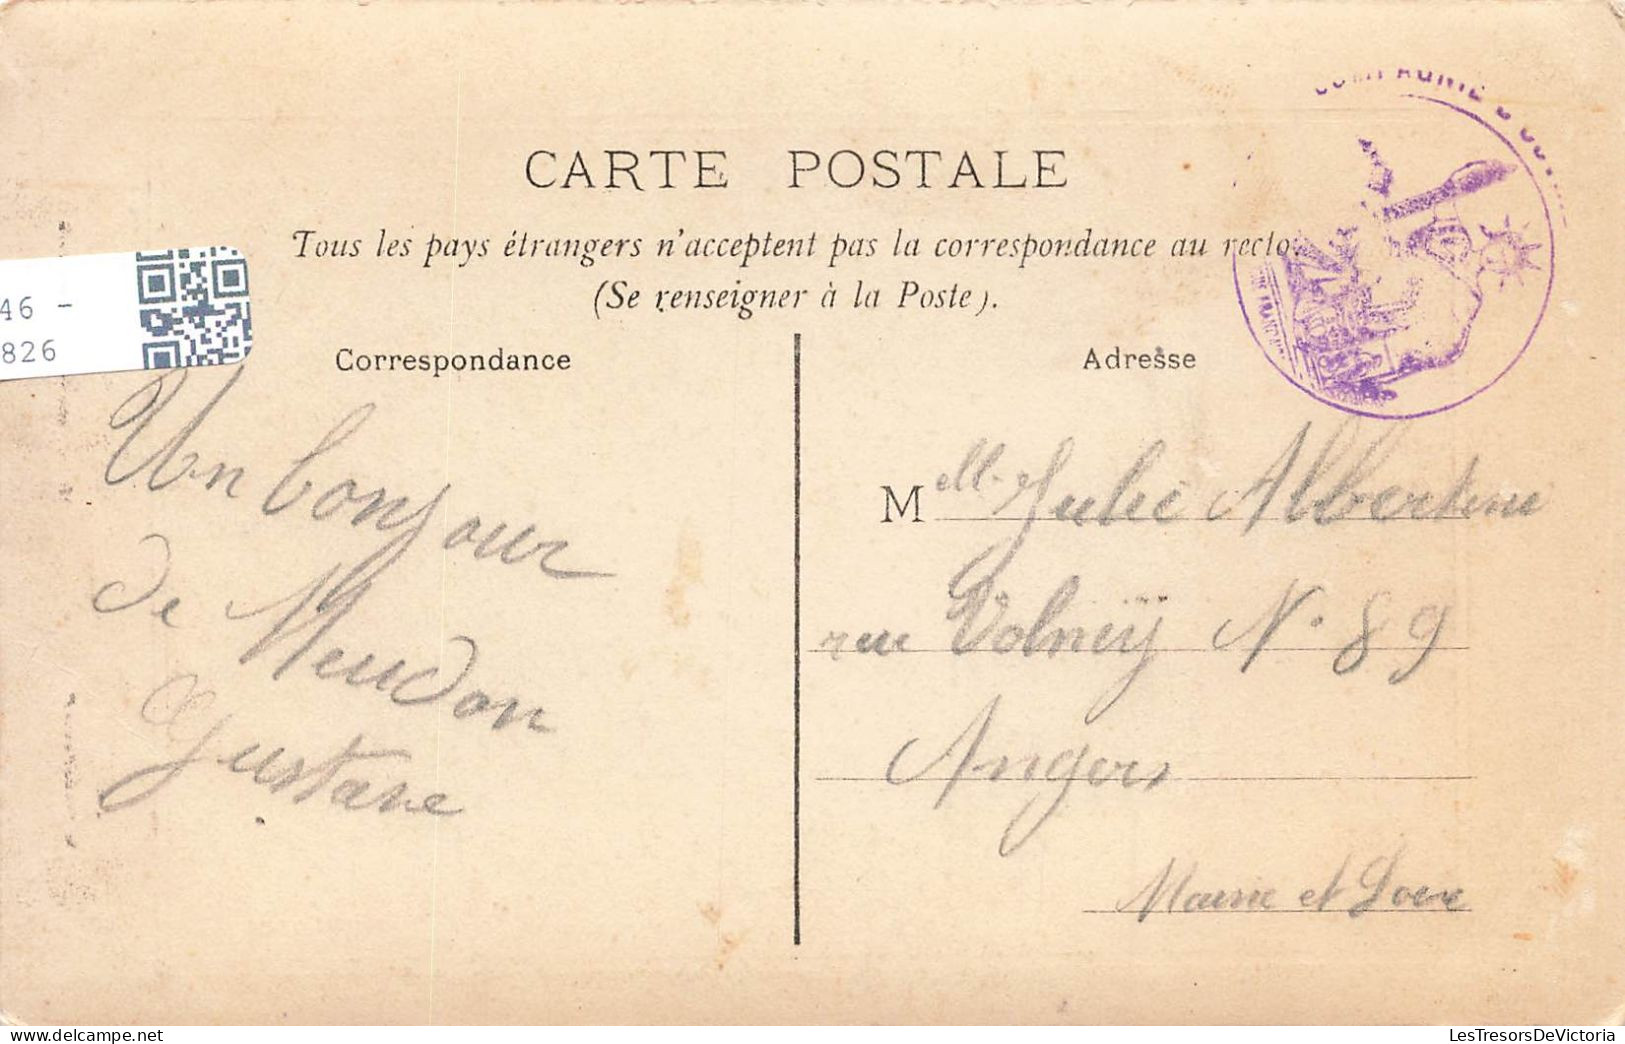 COMPAGNIE D'OUV
CARTE POSTALE
Tous les pays étrangers n'acceptent pas la correspondance au recto.
(Se renseigner à la Poste).
46 -
826
Correspondance
Adresse
Un bonjour
de Meudon
Gustave
Melle Julie Albertine
rue Volney N. 89
Angers
Maine et Loire
Delcampe.net
LesTresorsDeVictoria